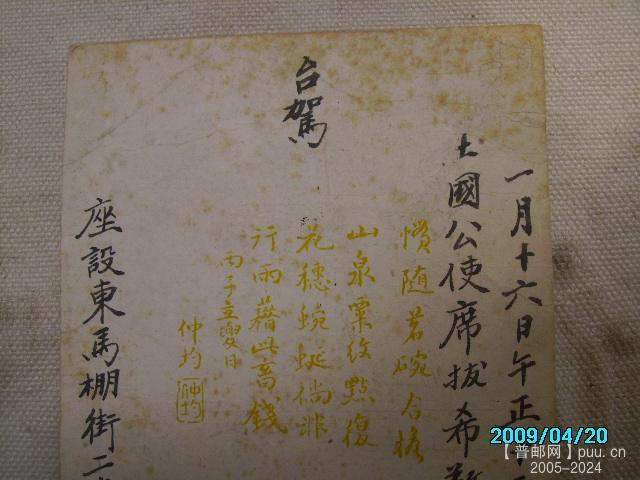 一月十六日午正十
土國公使席拔希
台駕
座設東馬棚街二
慣随茗碗合檐
山泉粟紋點復
花穗蜿蜒倘非
行雨藉此蓄錢
丙子立夏日
仲均
仲均
2009/04/20
【普邮网】puu.cn
2005-2024